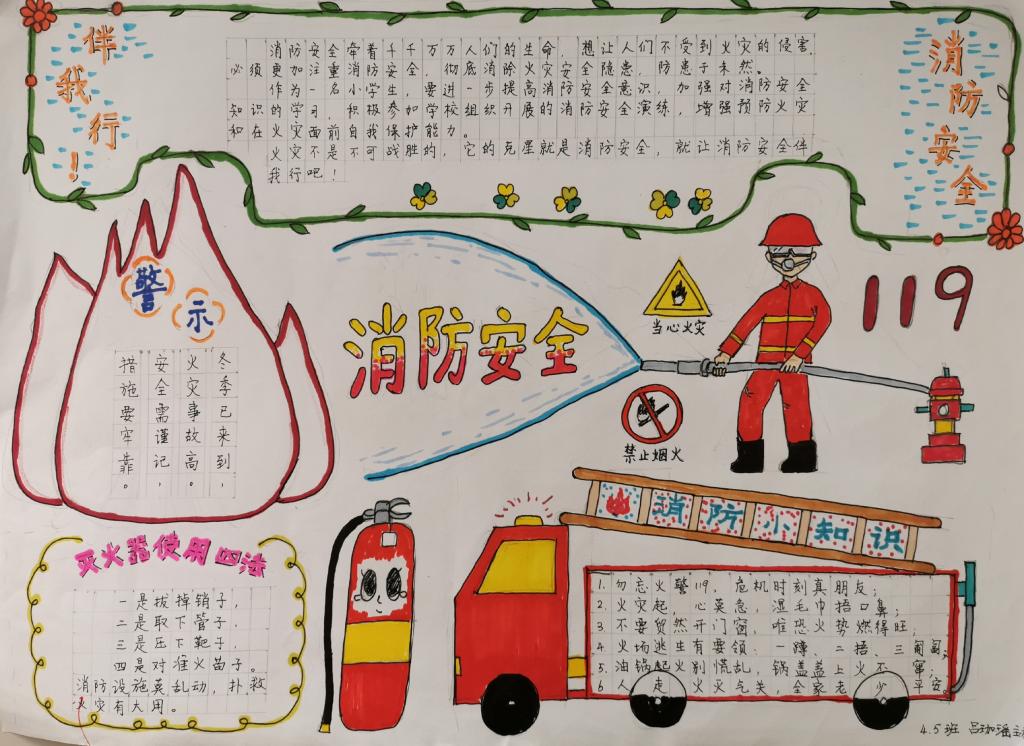 伴我行！
消防安全
消防安全牵着千千万万人们的生命，想让人们不受到火灾的侵害，
必须更加注重消防安全，彻底消除火灾安全隐患，防患于未然。
作为一名小学生，要进一步提高消防安全意识，加强对消防安全
知识的学习 积极参加学校组织开展的消防安全演练，增强预防火灾
和在火灾面前自我保护能力。
火灾不是不可战胜的，它的克星就是消防安全，就让消防安全伴
我行吧！
警示
冬季已来到，
火灾事故高。
安全需谨记，
措施要牢靠。
消防安全
当心火灾
禁止烟火
119
灭火器使用四法
一是拔掉销子，
二是取下管子，
三是压下靶子，
四是对准火苗子。
消防设施莫乱动，扑救
火灾有大用。
消防小知识
1. 勿忘火警119，危机时刻真朋友；
2. 火灾起，心莫急，湿毛巾捂口鼻；
3. 不要贸然开门窗，唯恐火势燃得旺；
4. 火场逃生有要领：一蹲、二捂、三匍匐；
5. 油锅起火别慌乱，锅盖盖上火不窜；
6. 人走火灭气关，全家老少平安。
4.5班 吕珈瑶